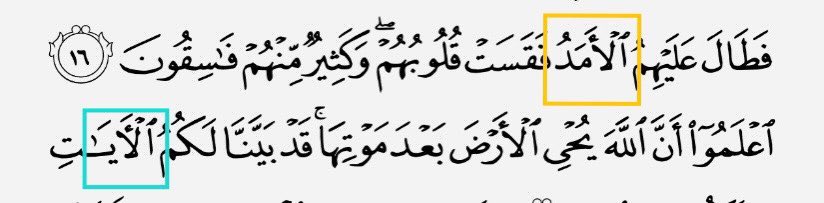 فَطَالَ عَلَيْهِمُ ٱلْأَمَدُ فَقَسَتْ قُلُوبُهُمْ ۖ وَكَثِيرٌ مِّنْهُمْ فَـٰسِقُونَ ١٦
ٱعْلَمُوٓا۟ أَنَّ ٱللَّهَ يُحْىِ ٱلْأَرْضَ بَعْدَ مَوْتِهَا ۚ قَدْ بَيَّنَّا لَكُمُ ٱلْـَٔايَـٰتِ